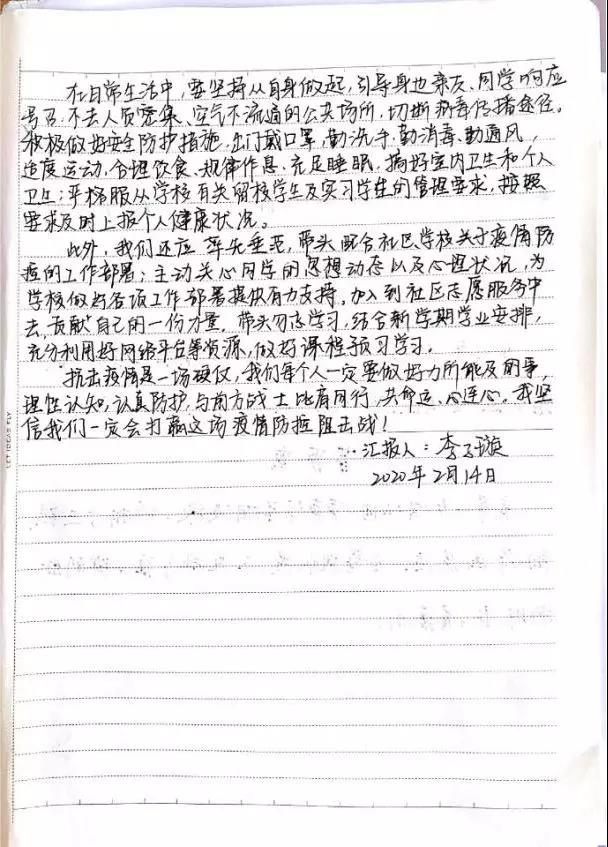 在日常生活中，要坚持从自身做起，引导身边亲友、同学响应
号召，不去人员密集、空气不流通的公共场所，切断病毒传播途径。
积极做好安全防护措施，出门戴口罩，勤洗手，勤消毒，勤通风，
适度运动，合理饮食、规律作息、充足睡眠，搞好室内卫生和个人
卫生；严格服从学校有关留校学生及实习学生的管理要求，按照
要求及时上报个人健康状况。
此外，我们还应率先垂范，带头配合社区、学校关于疫情防
控的工作部署；主动关心同学的思想动态以及心理状况，为
学校做好各项工作部署提供有力支持，加入到社区志愿服务中
去，贡献自己的一份力量。带头勿忘学习，结合新学期学业安排，
充分利用好网络平台等资源，做好课程预习学习。
抗击疫情是一场硬仗，我们每个人一定要做好力所能及的事，
理性认知，认真防护，与前方战士比肩同行，共命运、心连心。我坚
信我们一定会打赢这场疫情防控阻击战！
汇报人：李子璇
2020年2月14日